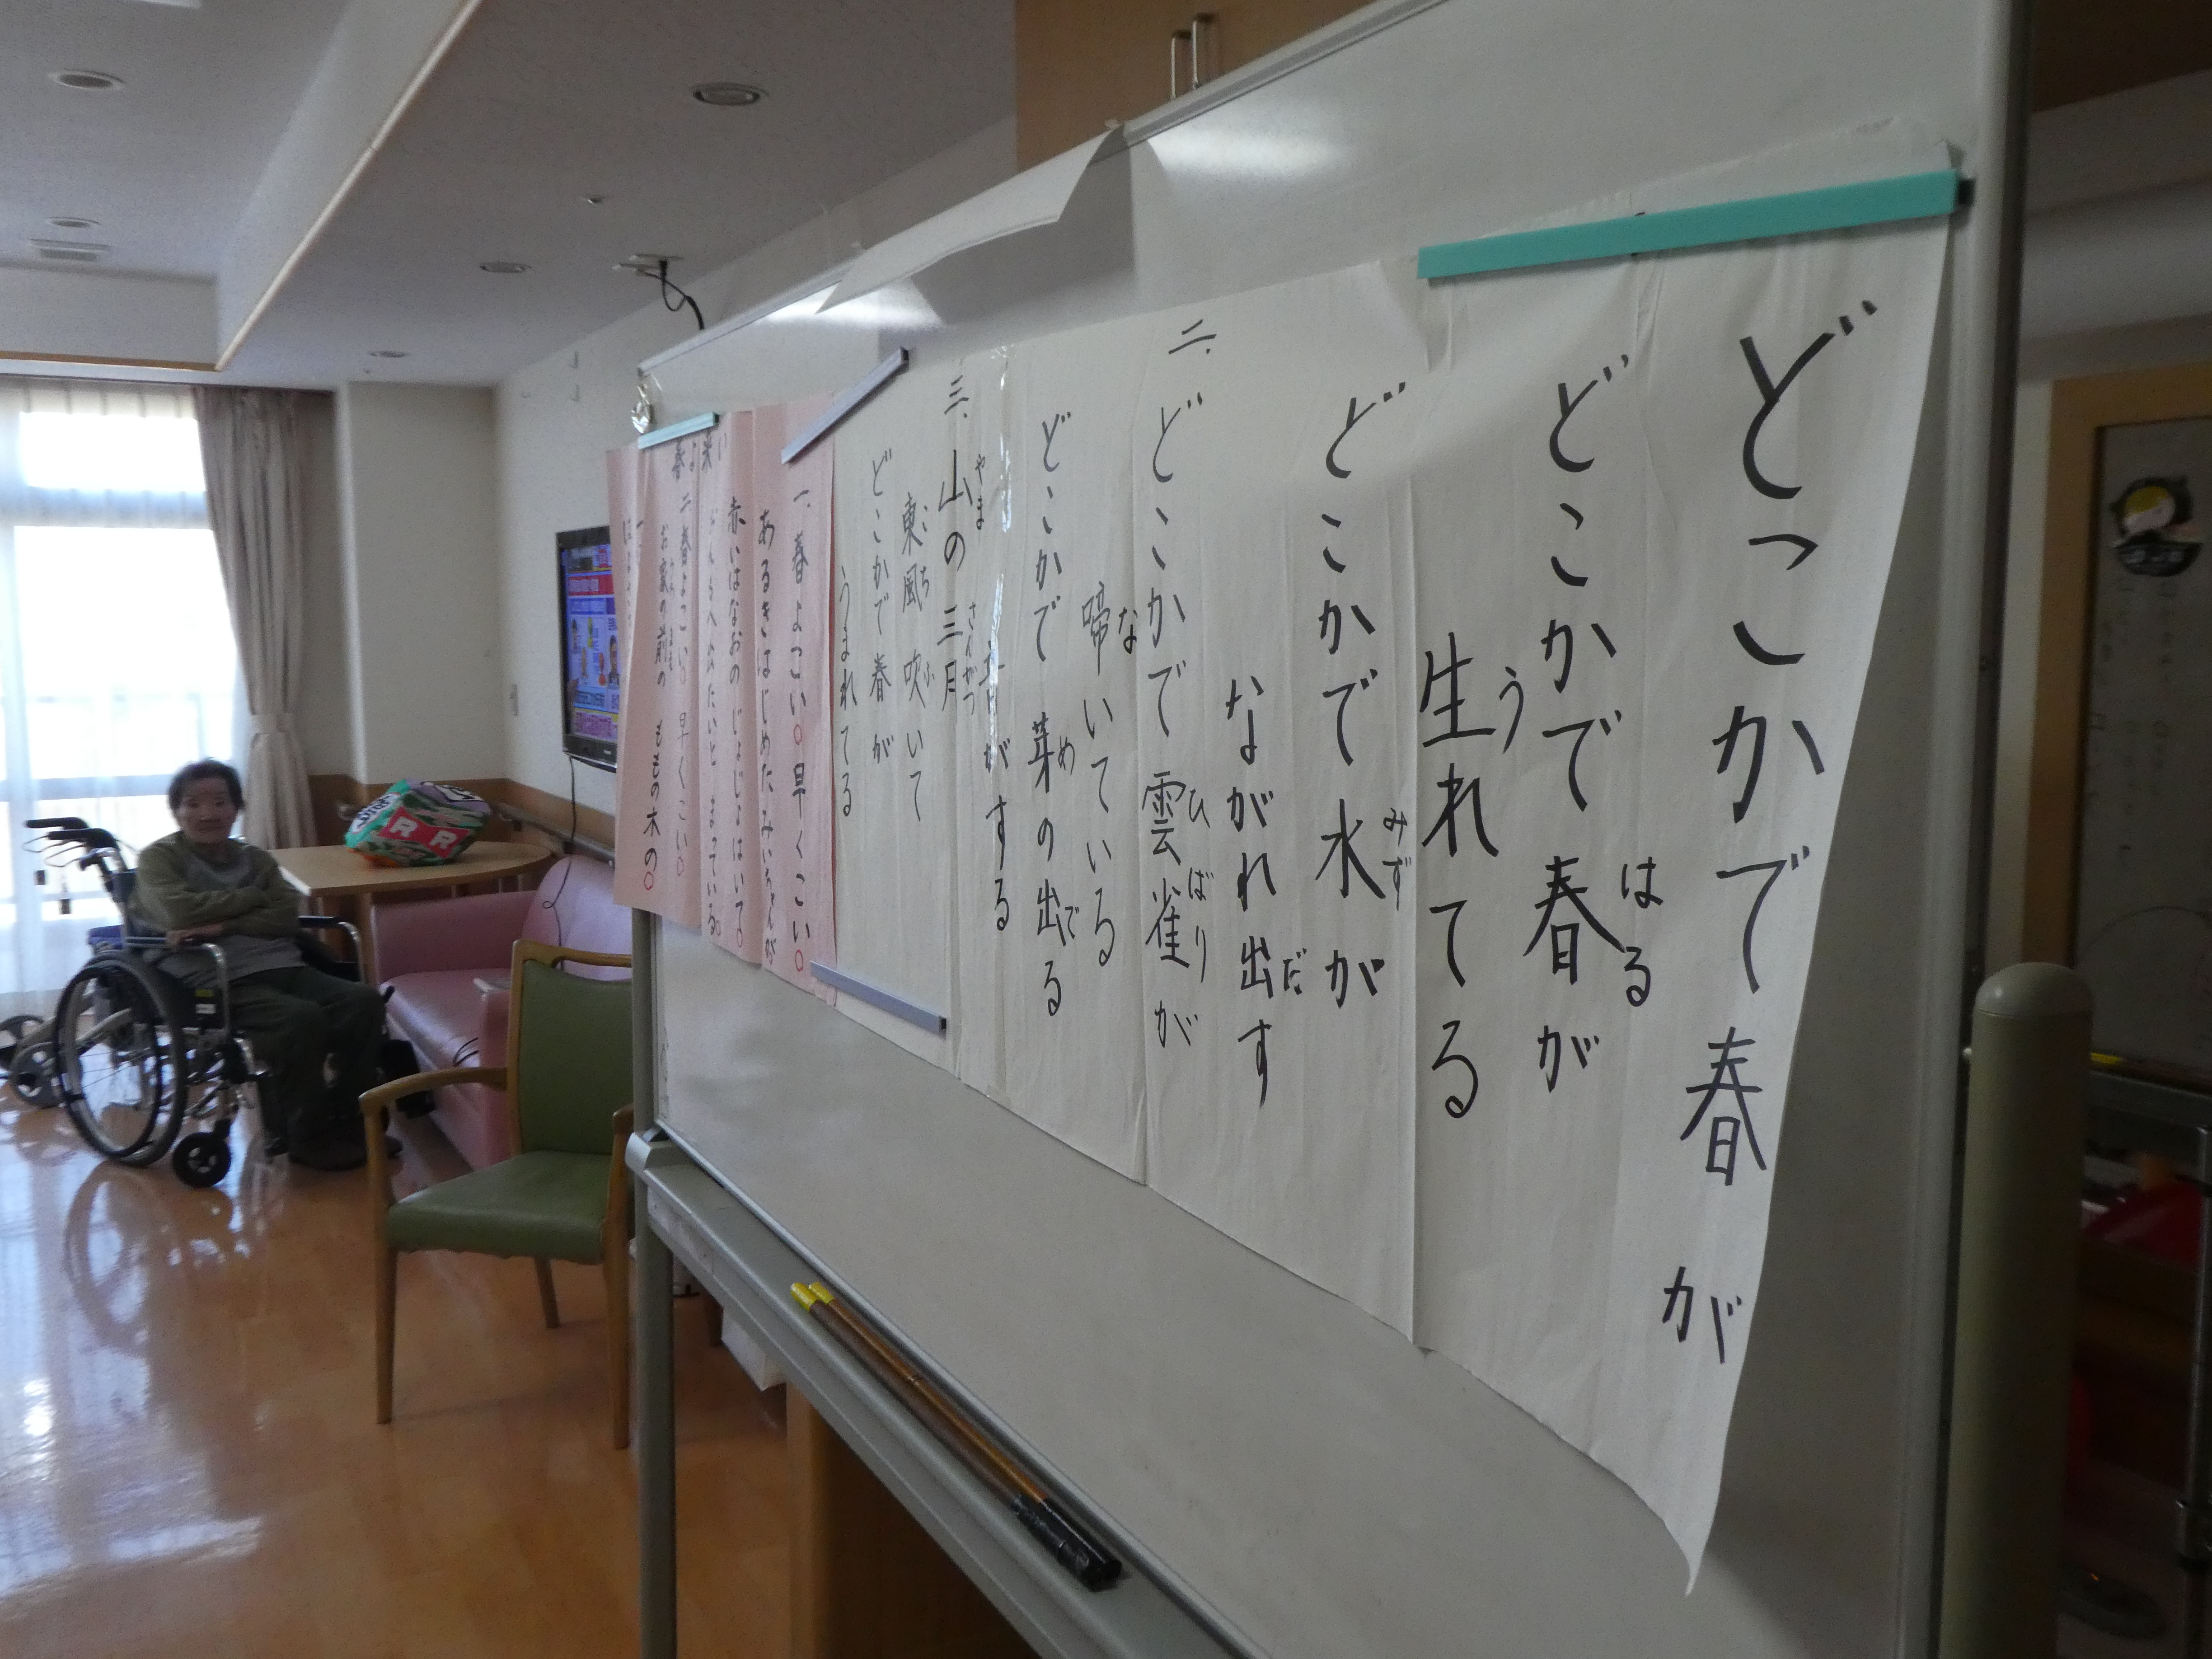 どこかで春が
どこかで春が
はる
生れてる
う
どこかで水が
みず
ながれ出す
だ
二.
どこかで雲雀が
ひばり
啼いている
な
どこかで芽の出る
め
で
がする
三.
山の三月
やま
さんがつ
東風吹いて
こち
ふ
どこかで春が
うまれてる
一.春よこい○早くこい○
あるきはじめたみいちゃんが
赤いはなおのじょじょはいて○
おんもへ出たいとまっている○
二春よこい○早くこい○
お家の前のももの木の○
RR